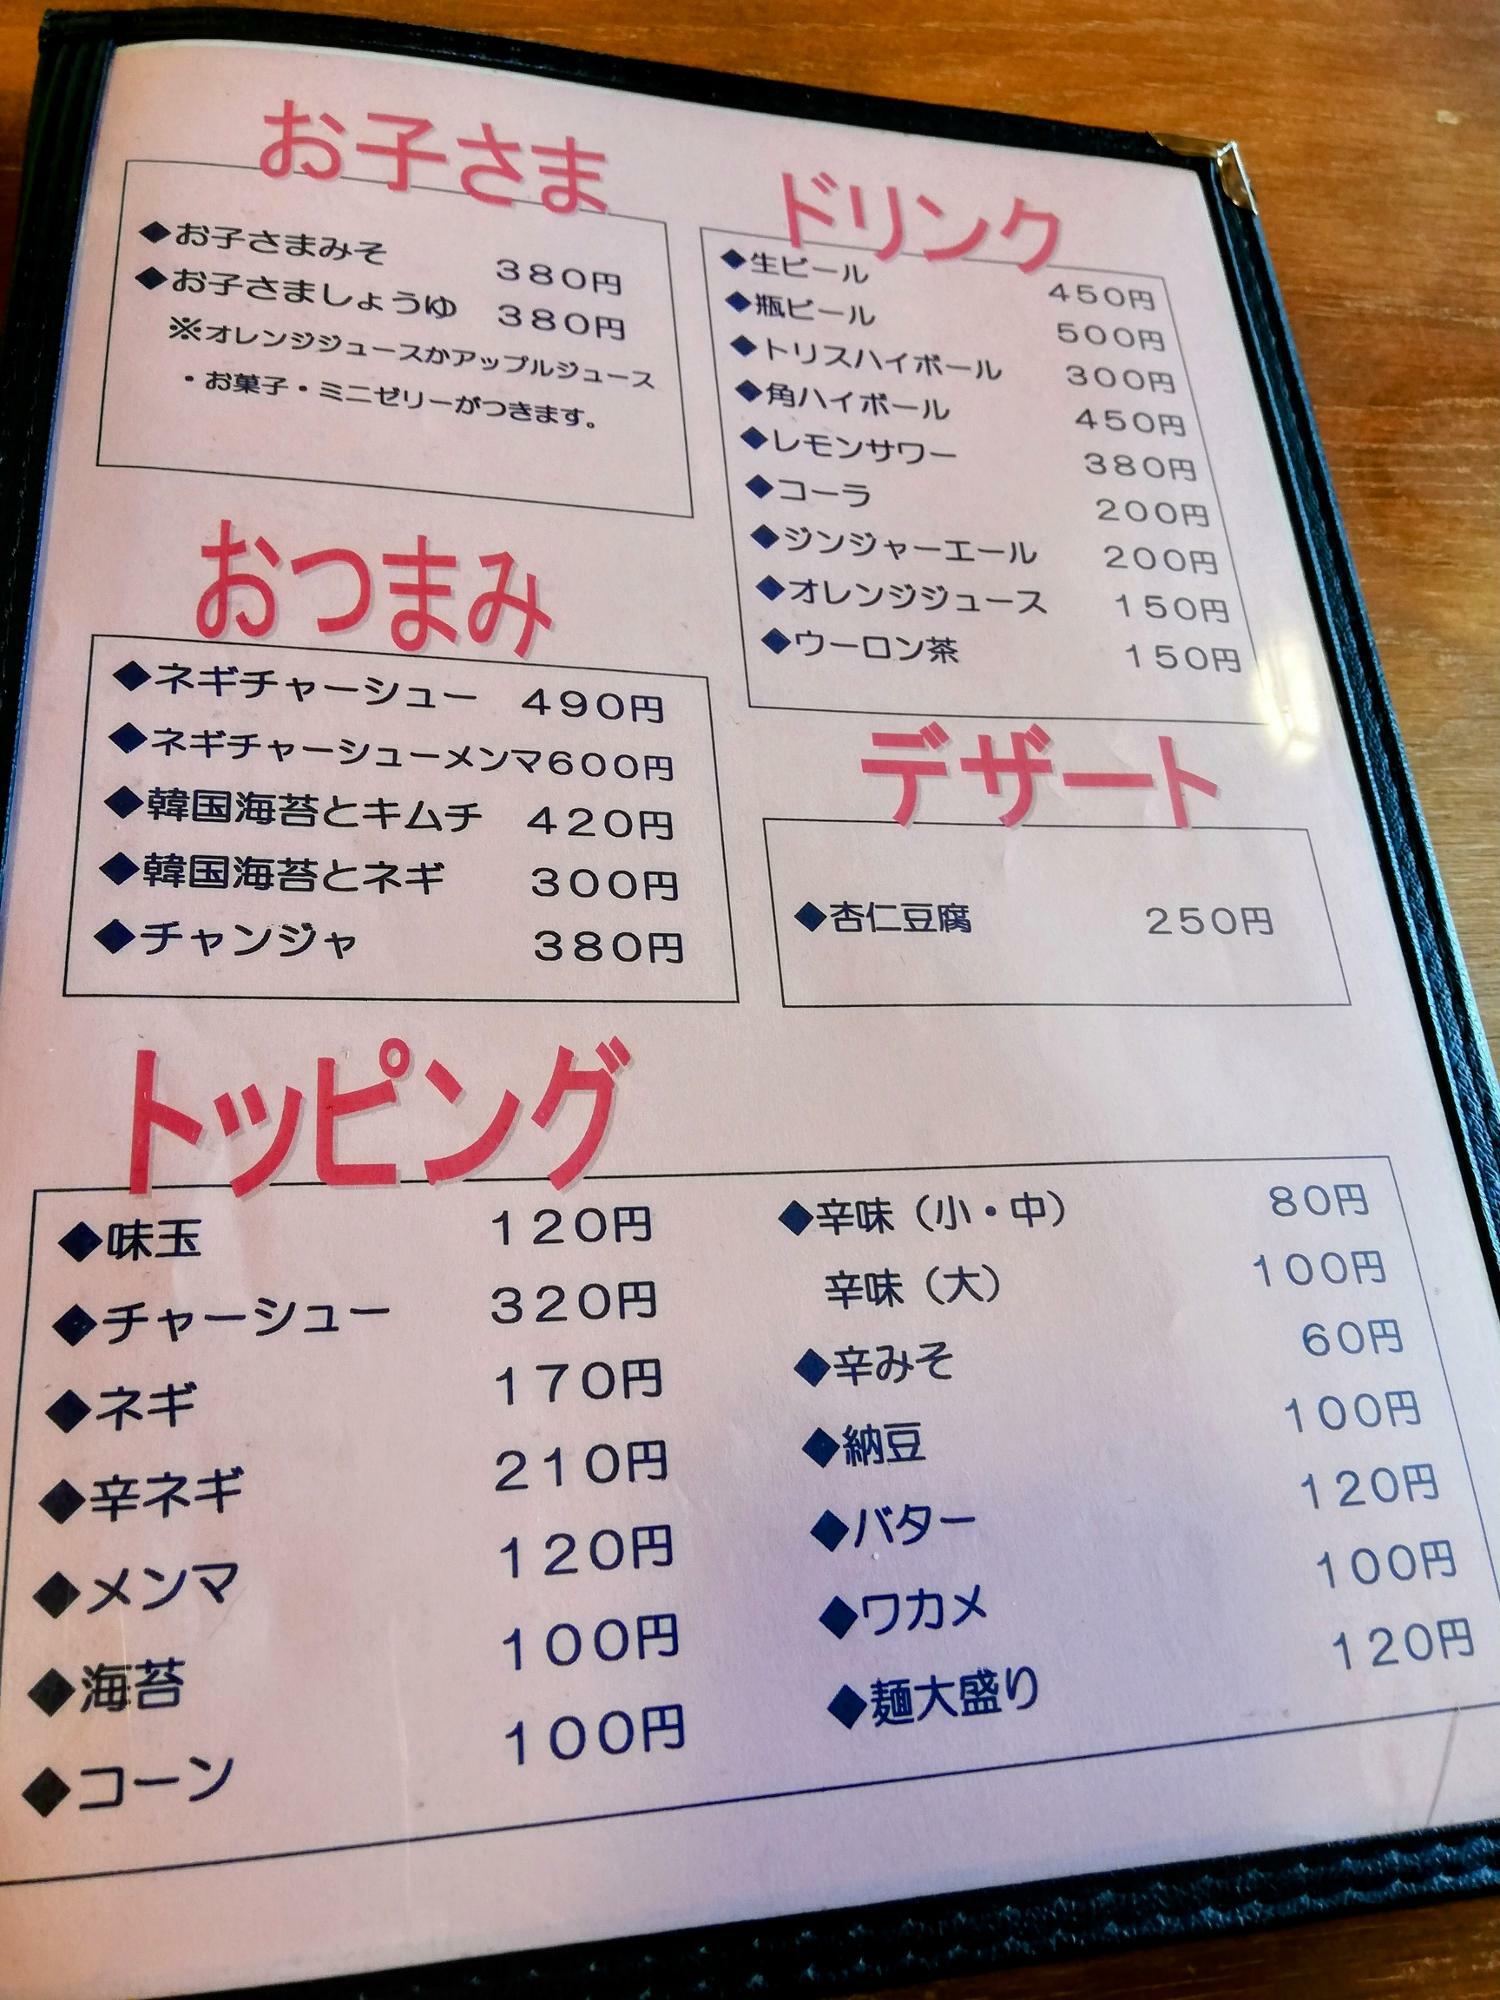 お子さま
◆お子さまみそ 380円
◆お子さましょうゆ 380円
※オレンジジュースかアップルジュース
・お菓子・ミニゼリーがつきます。
ドリンク
◆生ビール 450円
◆瓶ビール 500円
◆トリスハイボール 300円
◆角ハイボール 450円
◆レモンサワー 380円
◆コーラ 200円
◆ジンジャーエール 200円
◆オレンジジュース 150円
◆ウーロン茶 150円
おつまみ
◆ネギチャーシュー 490円
◆ネギチャーシューメンマ600円
◆韓国海苔とキムチ 420円
◆韓国海苔とネギ 300円
◆チャンジャ 380円
デザート
◆杏仁豆腐 250円
トッピング
◆味玉 120円
◆チャーシュー 320円
◆ネギ 170円
◆辛ネギ 210円
◆メンマ 120円
◆海苔 100円
◆コーン 100円
◆辛味（小・中） 80円
辛味（大） 100円
◆辛みそ 60円
◆納豆 100円
◆バター 120円
◆ワカメ 100円
◆麺大盛り 120円